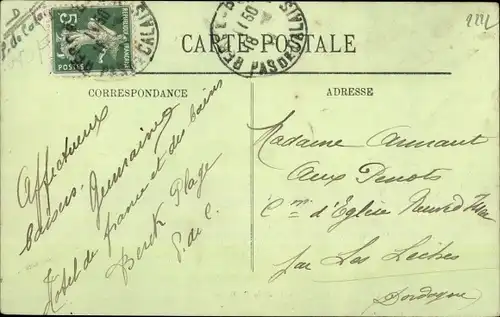 D
P. de Calais
5c
POSTES
BERCK-
18 50
PAS DE CALAIS
CARTE POSTALE
CORRESPONDANCE
ADRESSE
Affectueux
baisers. Germaine
Hotel de France et des bains
Berck Plage
P. de C.
Madame Armant
Aux Penots
Cne d'Eglise Neuve d'
par Les Lèches
Dordogne